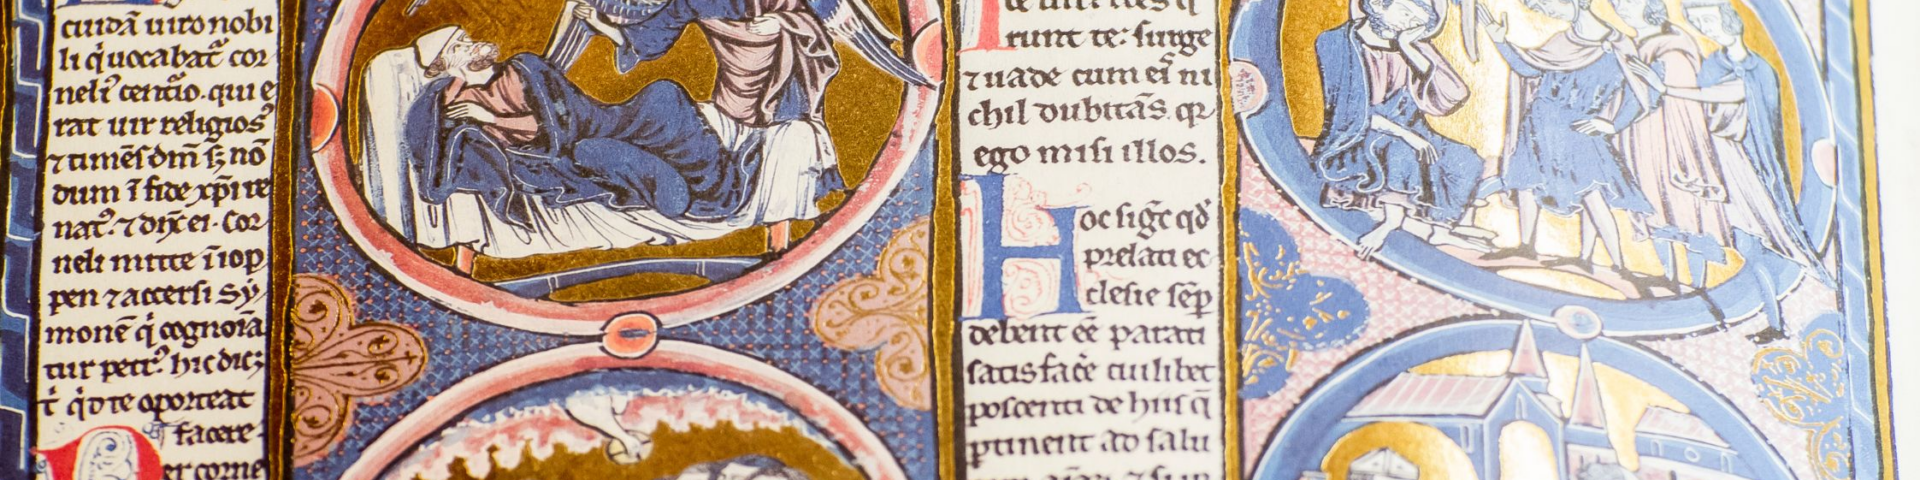 cuidā uiro nobi
li q̄ uocabat᷑ cor
neliꝰ centꝰio. qui e
rat uir religiosꝰ
⁊ timēs dm̄ sꝫ nō
dum ī fide xp̄i re
natꝰ. ⁊ dix̄ ei. Cor
neli mitte ī iop
pen ⁊ accersi Sy
monē q̇ cognoīa
tur petrꝰ. hic dicꝫ
t̄ q̇d te oporteat
facere.
er corne
runt te: surge
⁊ uade cum eiꝰ ni
chil dubitās. qꝛ
ego misi illos.
Hoc sigᷓt qd̓
prelati ec
clesie sēp
debent eē parati
satisfac̄e cuilibet
poscenti de hiis q̄
ꝑtinent ad salu